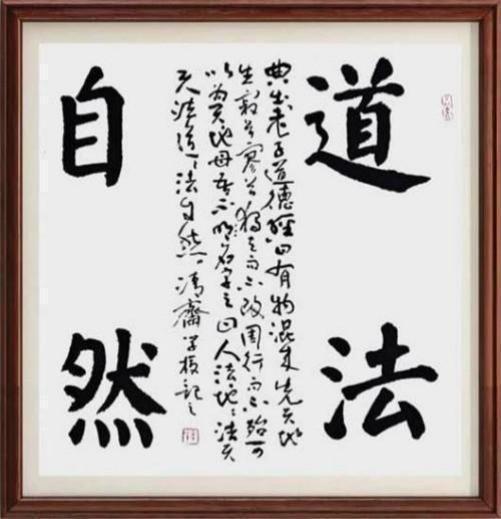 道法
典出老子道德經曰有物混成先天地
生寂兮寥兮獨立而不改周行而不殆可
以为天地母吾不名字之曰人法地〻法天
天法道〻法自然清齋記之
自然